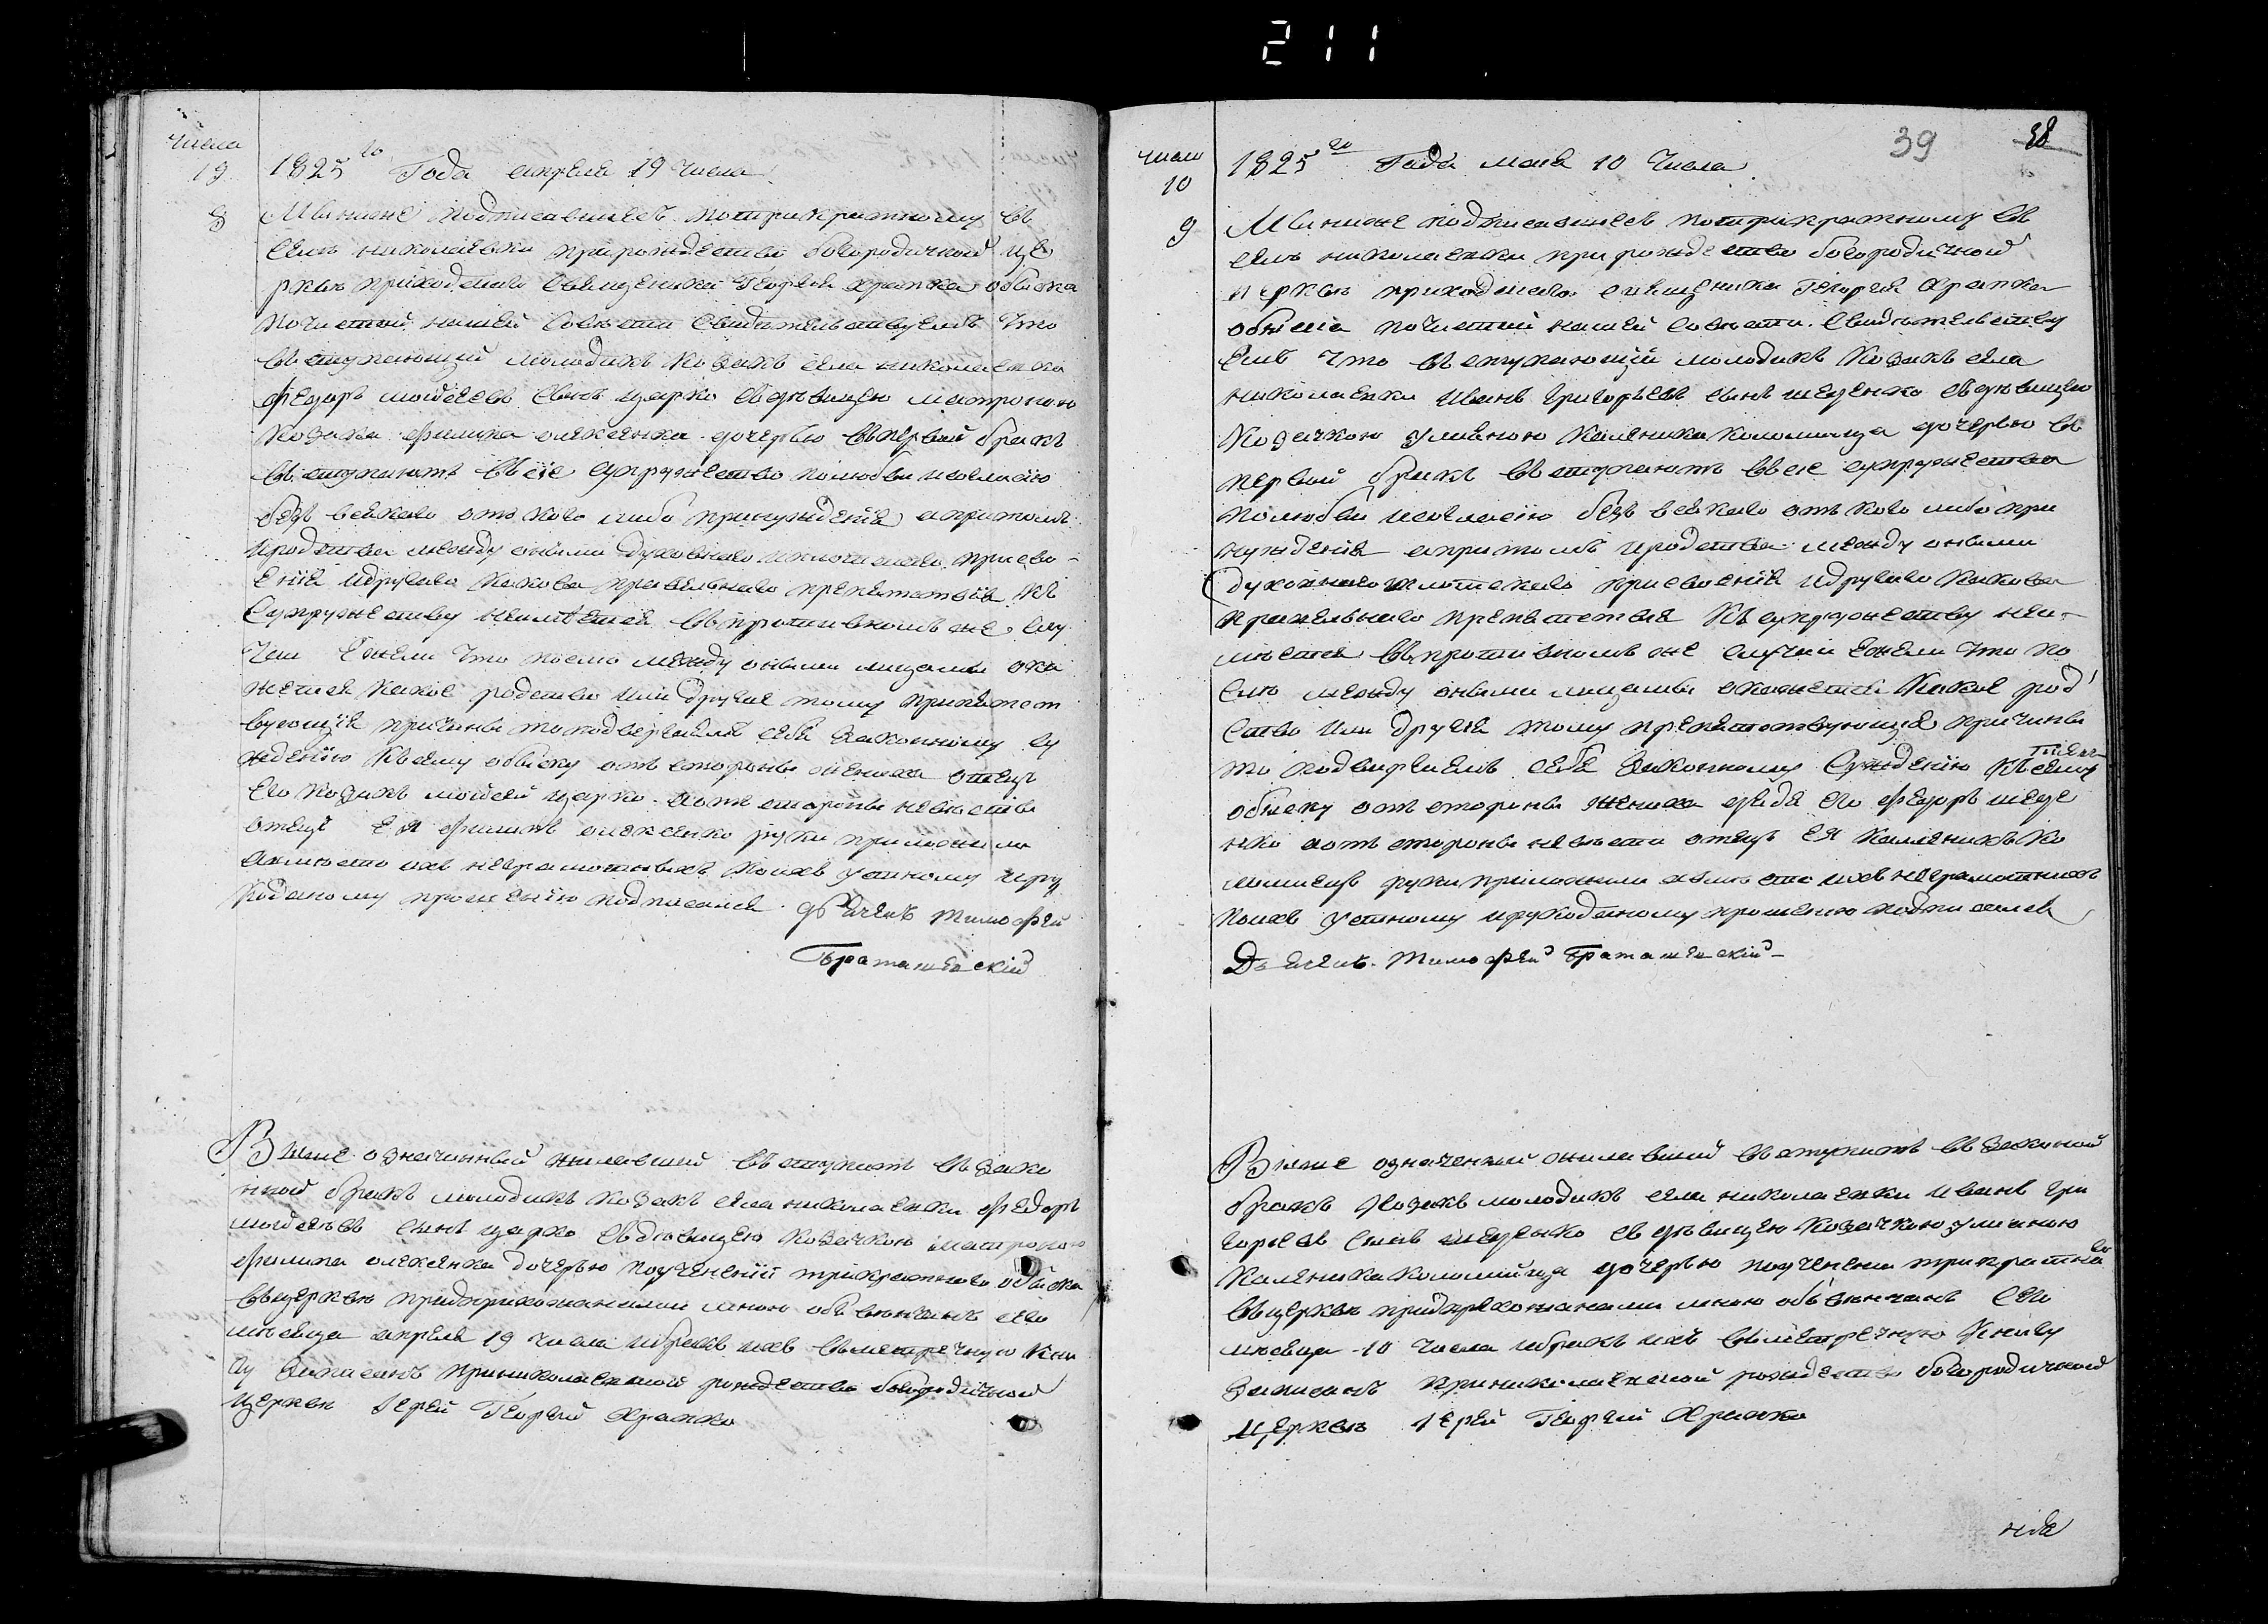 211
числа
19
8
1825го Года апреля 19 числа
Мы ниже подписавшиесь потрикратному въ
селѣ николаевки при рождества богородичной це
рквы приходского священика Георгия Храпка обыска
почистой нашей совести свидѣтельствуемъ что
въступающий молодикъ козакъ села николаевки
федоръ мойсеевъ сынъ царко съдѣвицею матроною
козака филипа олексенка дочерью въпервый бракъ
въступаютъ въсіе супружество полюбви исогласію
безъ всякаго отъ кого либо принуждения апритомъ
иродства между оными духовнаго иплотскаго присво-
ения идругаго какова правильнаго препятствія къ
Супружеству неимѣется въпротивномъ же слу
чаи Ежели что посля между оными лицами ока
жется какое родство или другие тому препятст
вующія причины то подвергаемъ себя законному су
ждению Ксему обыску отъ стороны жениха отецъ
его козакъ мойсей царко аотъ стороны невесты
отецъ Ея филипъ олексенко руки приложили
авместо ихъ неграмотныхъ поихъ устному иру
коданому прошению подписался дьячекъ тимофей
Браташевский
Выше означенный желавший въступить въ зако
нной бракъ молодикъ козакъ села николаевки федоръ
мойсеевъ сынъ царко съдѣвицею козачкою матроною
филипа олексенка дочерью поучинении трикратнаго обыска
въцерквы предприхожанами мною объвенчанъ сего
мѣсяца апреля 19 числа ибракъ ихъ въметречную кни
гу записанъ приниколаевской рождества богородичной
церквы Иерей Георгий Храпко
39
38
числа
10
9
1825го Года мая 10 числа
Мы ниже подписавшиесь потрикратному въ
селѣ николаевки при рождества богородичной
церквы приходского священика Георгия Храпка
обыска почистой нашей совести свидѣтельству
емъ что въступающий молодикъ козакъ села
николаевки Иванъ григорьевъ сынъ шеденко съдѣвицею
козачкою улианою каленика коломийца дочерью въ
первый бракъ въступаютъ въсие супружество
полюбви исогласію безъ всякаго отъ кого либо при
нуждения апритомъ иродства между оными
духовнаго иплотскаго присвоения идругаго какова
правильнаго препятствия къ супружеству неи-
мѣется въпротивномъ же случаи Ежели что по
сля между оными лицами окажется какое род
ство или другия тому препятствующия причины
то подвергаемъ себя законному Суждению Ксему
обыску отъ стороны жениха дядя его федоръ шеде
нко аотъ стороны невесты отецъ Ея каленикъ ко
ломиецъ руки приложили авместо ихъ неграмотныхъ
поихъ устному ирукоданому прошению подписался
Дьячекъ Тимофей Браташевский
Выше означенный желавший въступить въ законной
бракъ козакъ молодикъ села николаевки иванъ гри
горьевъ сынъ шеденко съ дѣвицею козачкою улианою
каленика коломийца дочерью поучинении трикратнаго
въцерквы предприхожанами мною объвѣнчанъ сего
мѣсяца 10 числа ибракъ ихъ въметречную книгу
записанъ приниколаевской рождества богородичной
церквы Иерей Георгий Храпко